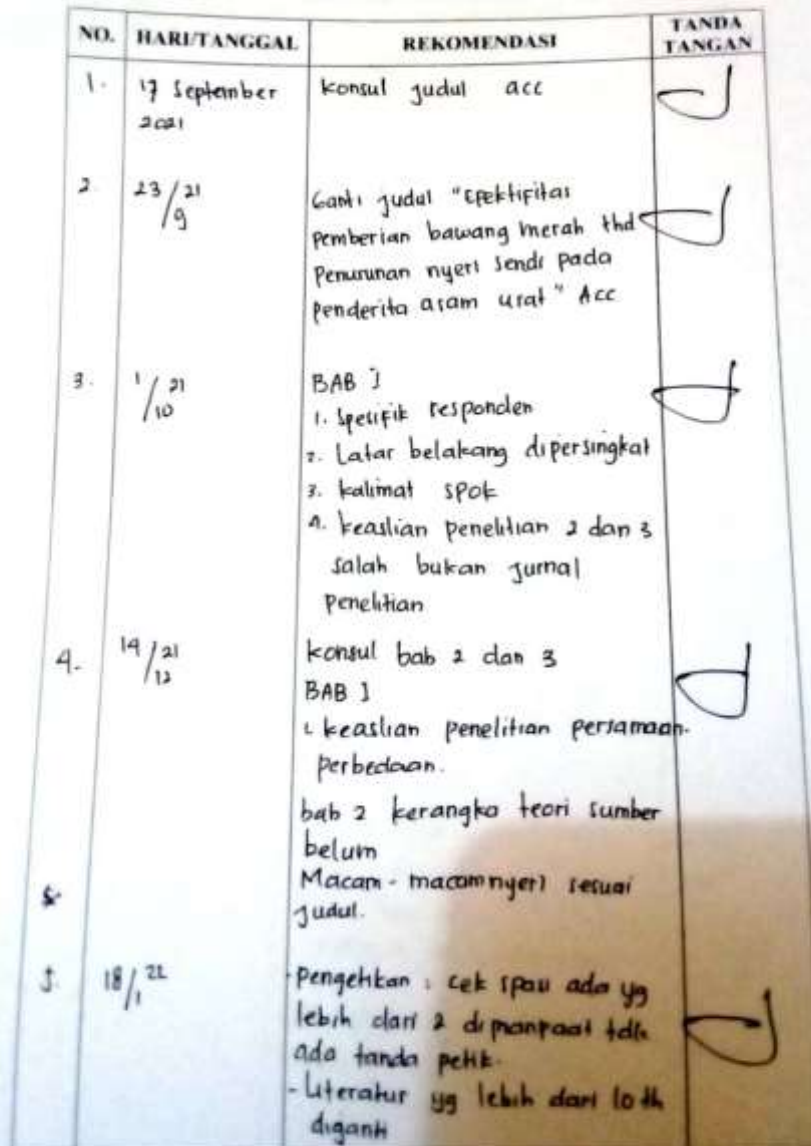 NO. HARI/TANGGAL REKOMENDASI TANDA TANGAN
1. 17 September 2021 konsul judul acc
2. 23/9 21 Ganti judul "Efektifitas
pemberian bawang merah thd
Penurunan nyeri sendi pada
penderita asam urat" Acc
3. 1/10 21 BAB I
1. Spesifik responden
2. Latar belakang dipersingkat
3. kalimat SPOK
4. keaslian penelitian 2 dan 3
salah bukan jurnal
penelitian
4. 14/12 21 konsul bab 2 dan 3
BAB I
1. keaslian penelitian persamaan-
perbedaan.
bab 2 kerangka teori sumber
belum
Macam-macam nyeri sesuai
judul.
5. 18/1 22 - pengetikan : cek spasi ada yg
lebih dari 2 tdk
ada tanda petik.
- Literatur yg lebih dari 10 th
diganti